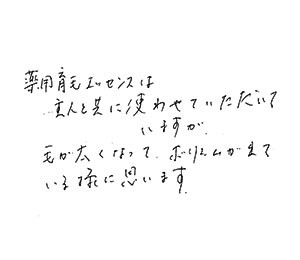 薬用育毛エッセンスは
主人と共に使わせていただいて
いますが、
毛が太くなって、ボリュムがまて
いる様に思います。